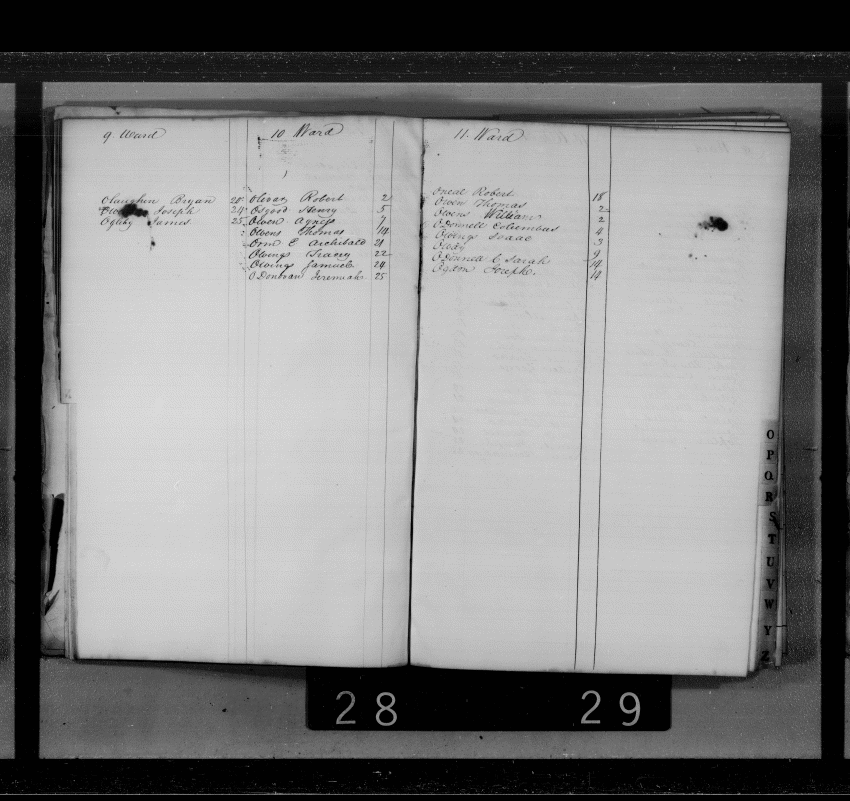 9. Ward
Olaughlin Bryan 20
Joseph 24
Ogleby James 25
10 Ward
Oliver Robert 2
Osgood Henry 5
Owen Agness 7
Owens Thomas 14
Orm E Archibald 21
Owings Tracey 22
Owings Samuel 24
O Donovan Jeremiah 25
11. Ward
Oneal Robert 18
Owen Thomas 2
Owens William 2
O Donnell Columbus 4
Owings Isaac 3
9
O Donnell C Sarah 14
Ogdon Joseph. 14
O
P
Q
R
S
T
U
V
W
Y
Z
28 29